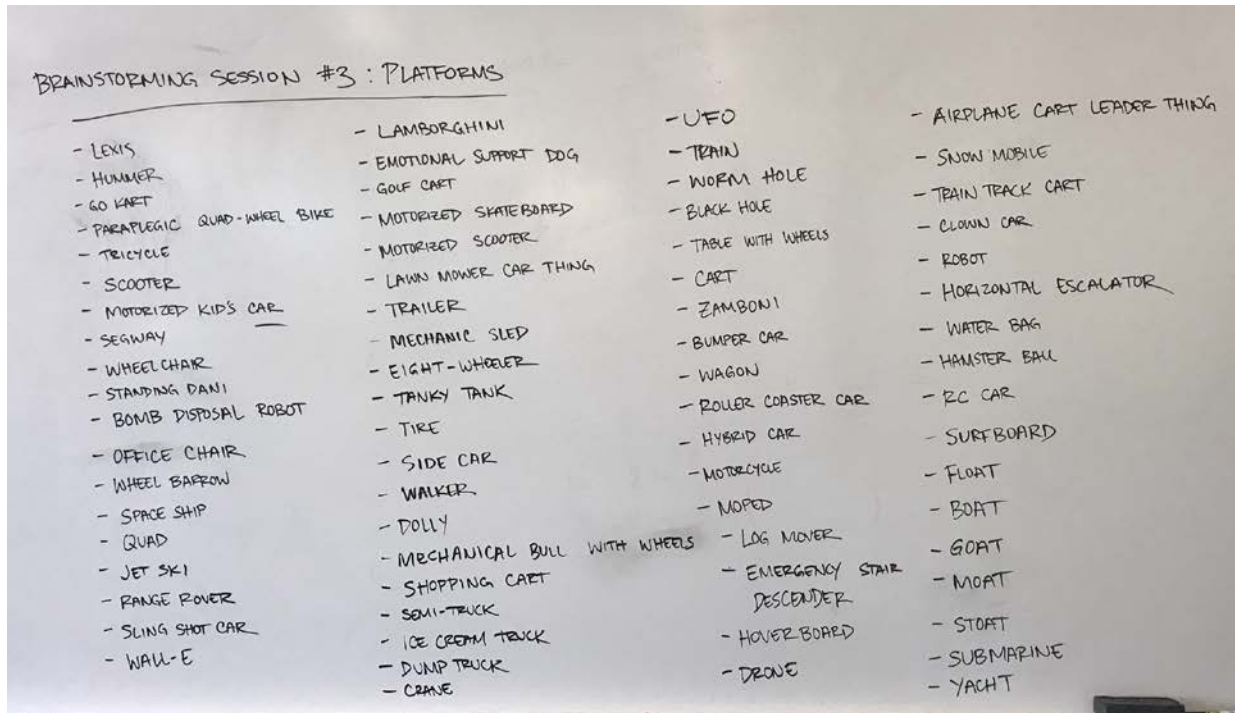 BRAINSTORMING SESSION #3 : PLATFORMS
- LEXIS
- HUMMER
- GO KART
- PARAPLEGIC QUAD-WHEEL BIKE
- TRICYCLE
- SCOOTER
- MOTORIZED KID'S CAR
- SEGWAY
- WHEELCHAIR
- STANDING DANI
- BOMB DISPOSAL ROBOT
- OFFICE CHAIR
- WHEEL BARROW
- SPACE SHIP
- QUAD
- JET SKI
- RANGE ROVER
- SLING SHOT CAR
- WALL-E
- LAMBORGHINI
- EMOTIONAL SUPPORT DOG
- GOLF CART
- MOTORIZED SKATEBOARD
- MOTORIZED SCOOTER
- LAWN MOWER CAR THING
- TRAILER
- MECHANIC SLED
- EIGHT-WHEELER
- TANKY TANK
- TIRE
- SIDE CAR
- WALKER
- DOLLY
- MECHANICAL BULL WITH WHEELS
- SHOPPING CART
- SEMI-TRUCK
- ICE CREAM TRUCK
- DUMP TRUCK
- CRANE
- UFO
- TRAIN
- WORM HOLE
- BLACK HOLE
- TABLE WITH WHEELS
- CART
- ZAMBONI
- BUMPER CAR
- WAGON
- ROLLER COASTER CAR
- HYBRID CAR
- MOTORCYCLE
- MOPED
- LOG MOVER
- EMERGENCY STAIR
DESCENDER
- HOVERBOARD
- DRONE
- AIRPLANE CART LEADER THING
- SNOW MOBILE
- TRAIN TRACK CART
- CLOWN CAR
- ROBOT
- HORIZONTAL ESCALATOR
- WATER BAG
- HAMSTER BALL
- RC CAR
- SURFBOARD
- FLOAT
- BOAT
- GOAT
- MOAT
- STOAT
- SUBMARINE
- YACHT